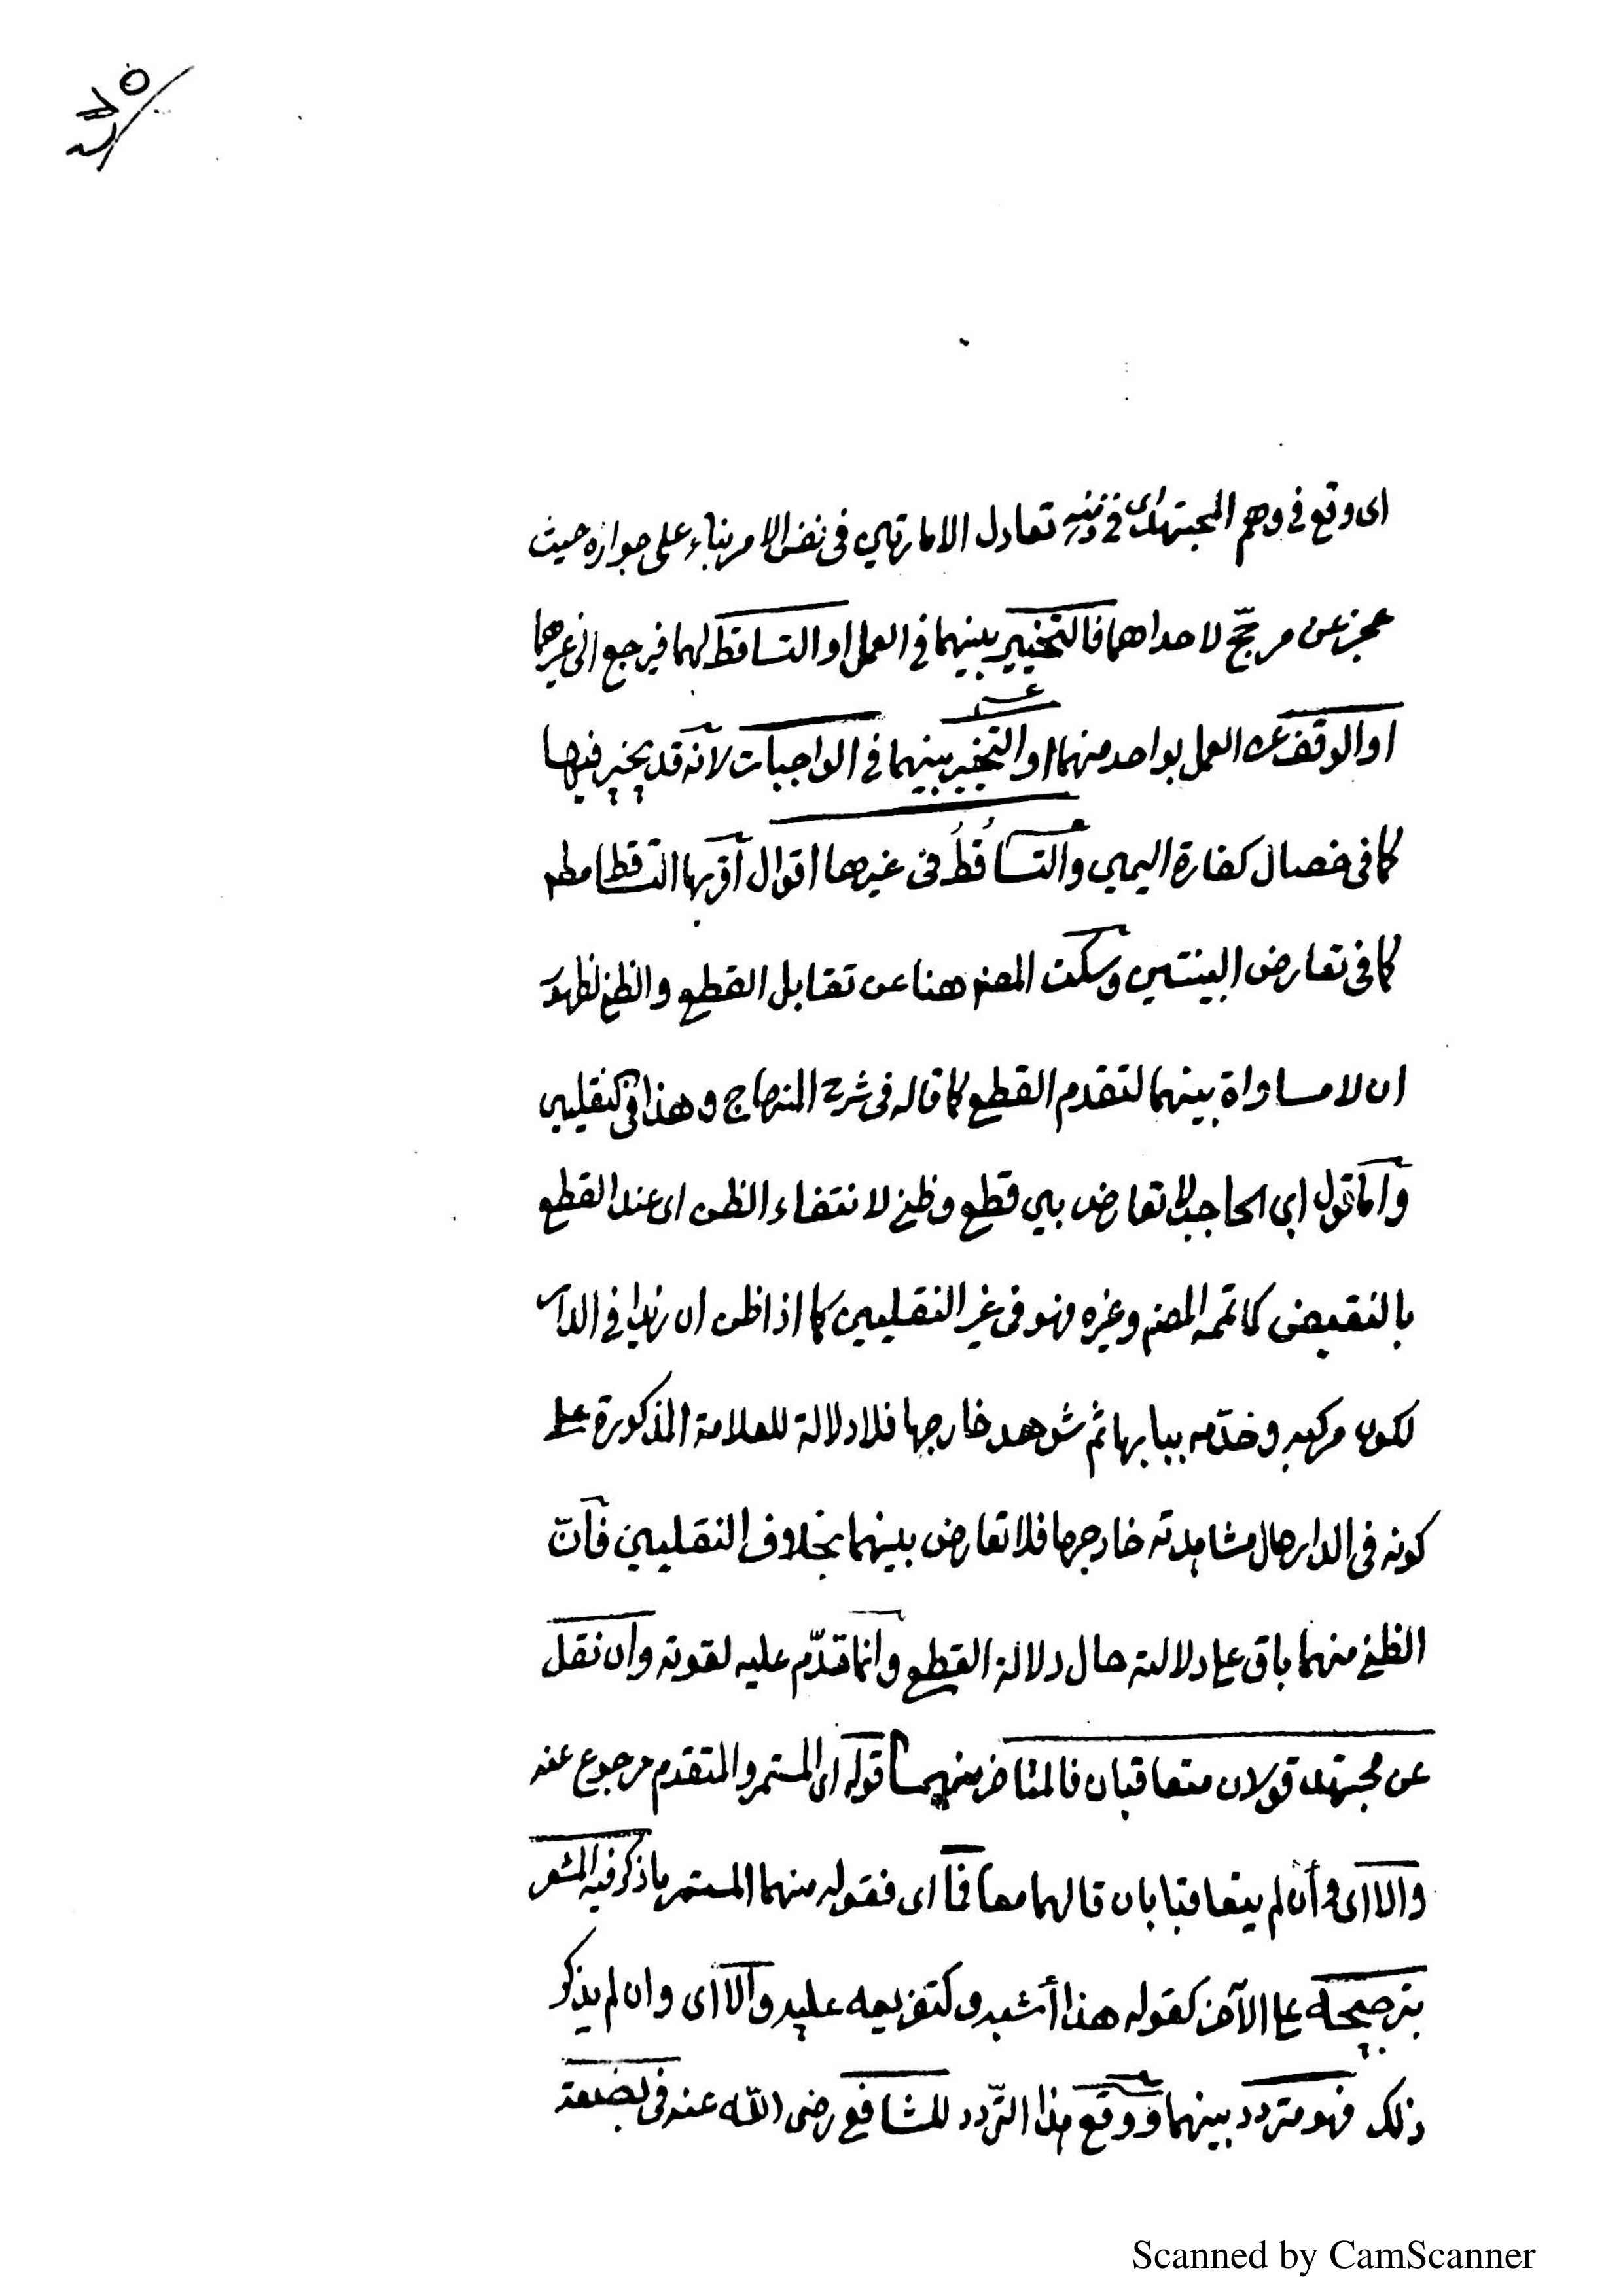 اى وقع فى وهم المجتهد اى فى ذهنه تعادل الامارتين فى نفس الامر بناء على جوازه حيث
عجز عن مرجّح لاحداهما فالتخيير بينهما فى العمل او التساقط لهما فيرجع الى غيرهما
او الوقف عن العمل بواحد منهما او التخيير بينهما فى الواجبات لانّه قد يخير فيها
كما فى خصال كفارة اليمين والتساقطُ فى غيرها اقوال اقربها التساقط مطم
كما فى تعارض البينتين وسكت المصنم هنا عن تقابل القطع والظنى لظهور
ان لا مساواة بينهما لتقدم القطع كما قاله فى شرح المنهاج وهذا فى النقليين
وامّا قول ابن الحاجب لا تعارض بين قطع وظنى لانتفاء الظن اى عند القطع
بالنقيض كما تممه المصنم وغيره فهو فى غير النقليين كما اذا ظن ان زيدا فى الدار
لكون مركبه وخدّمه ببابها ثم شوهد خارجها فلا دلالة للعلامة المذكورة على
كونه فى الدار حال مشاهدته خارجها فلا تعارض بينهما بخلاف النقليين فانّ
الظنى منهما باق على دلالته حال دلالة القطع وانما قدّم عليه لقوته وان نقل
عن مجتهد قولان متعاقبان فالمتأخر منهما قوله اى المستمر والمتقدم مرجوع عنه
والا اى وأن لم يتعاقبا بان قالهما معا فما اى فقوله منهما المستمر ما ذكر فيه المشعر
بترجيحه على الآخر كقوله هذا أشبه وكتفريعه عليه والا اى وان لم يذكر
ذلك فهو متردد بينهما ووقع هذا التّردد للشافعى رضى اللّه عنه فى بضعة
Scanned by CamScanner